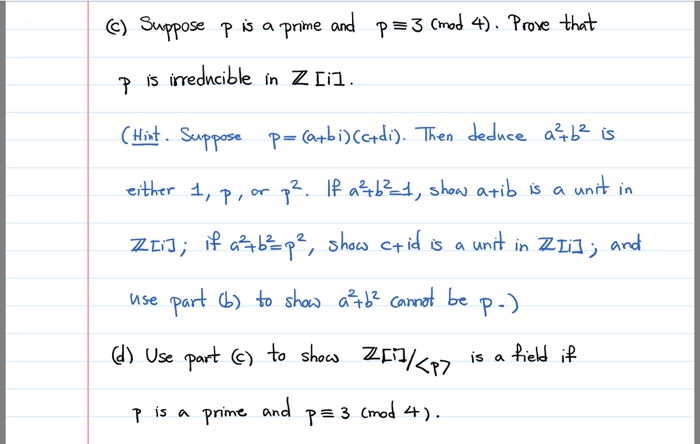 (c) Suppose p is a prime and p ≡ 3 (mod 4). Prove that
p is irreducible in ℤ[i].
(Hint. Suppose p = (a+bi)(c+di). Then deduce a²+b² is
either 1, p, or p². If a²+b²=1, show a+ib is a unit in
ℤ[i]; if a²+b²=p², show c+id is a unit in ℤ[i]; and
use part (b) to show a²+b² cannot be p.)
(d) Use part (c) to show ℤ[i]/<p> is a field if
p is a prime and p ≡ 3 (mod 4).